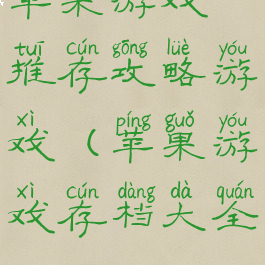 苹果游戏
tuī cún gōng lüè yóu
推存攻略游
xì píng guǒ yóu
戏（苹果游
xì cún dàng dà quán
戏存档大全